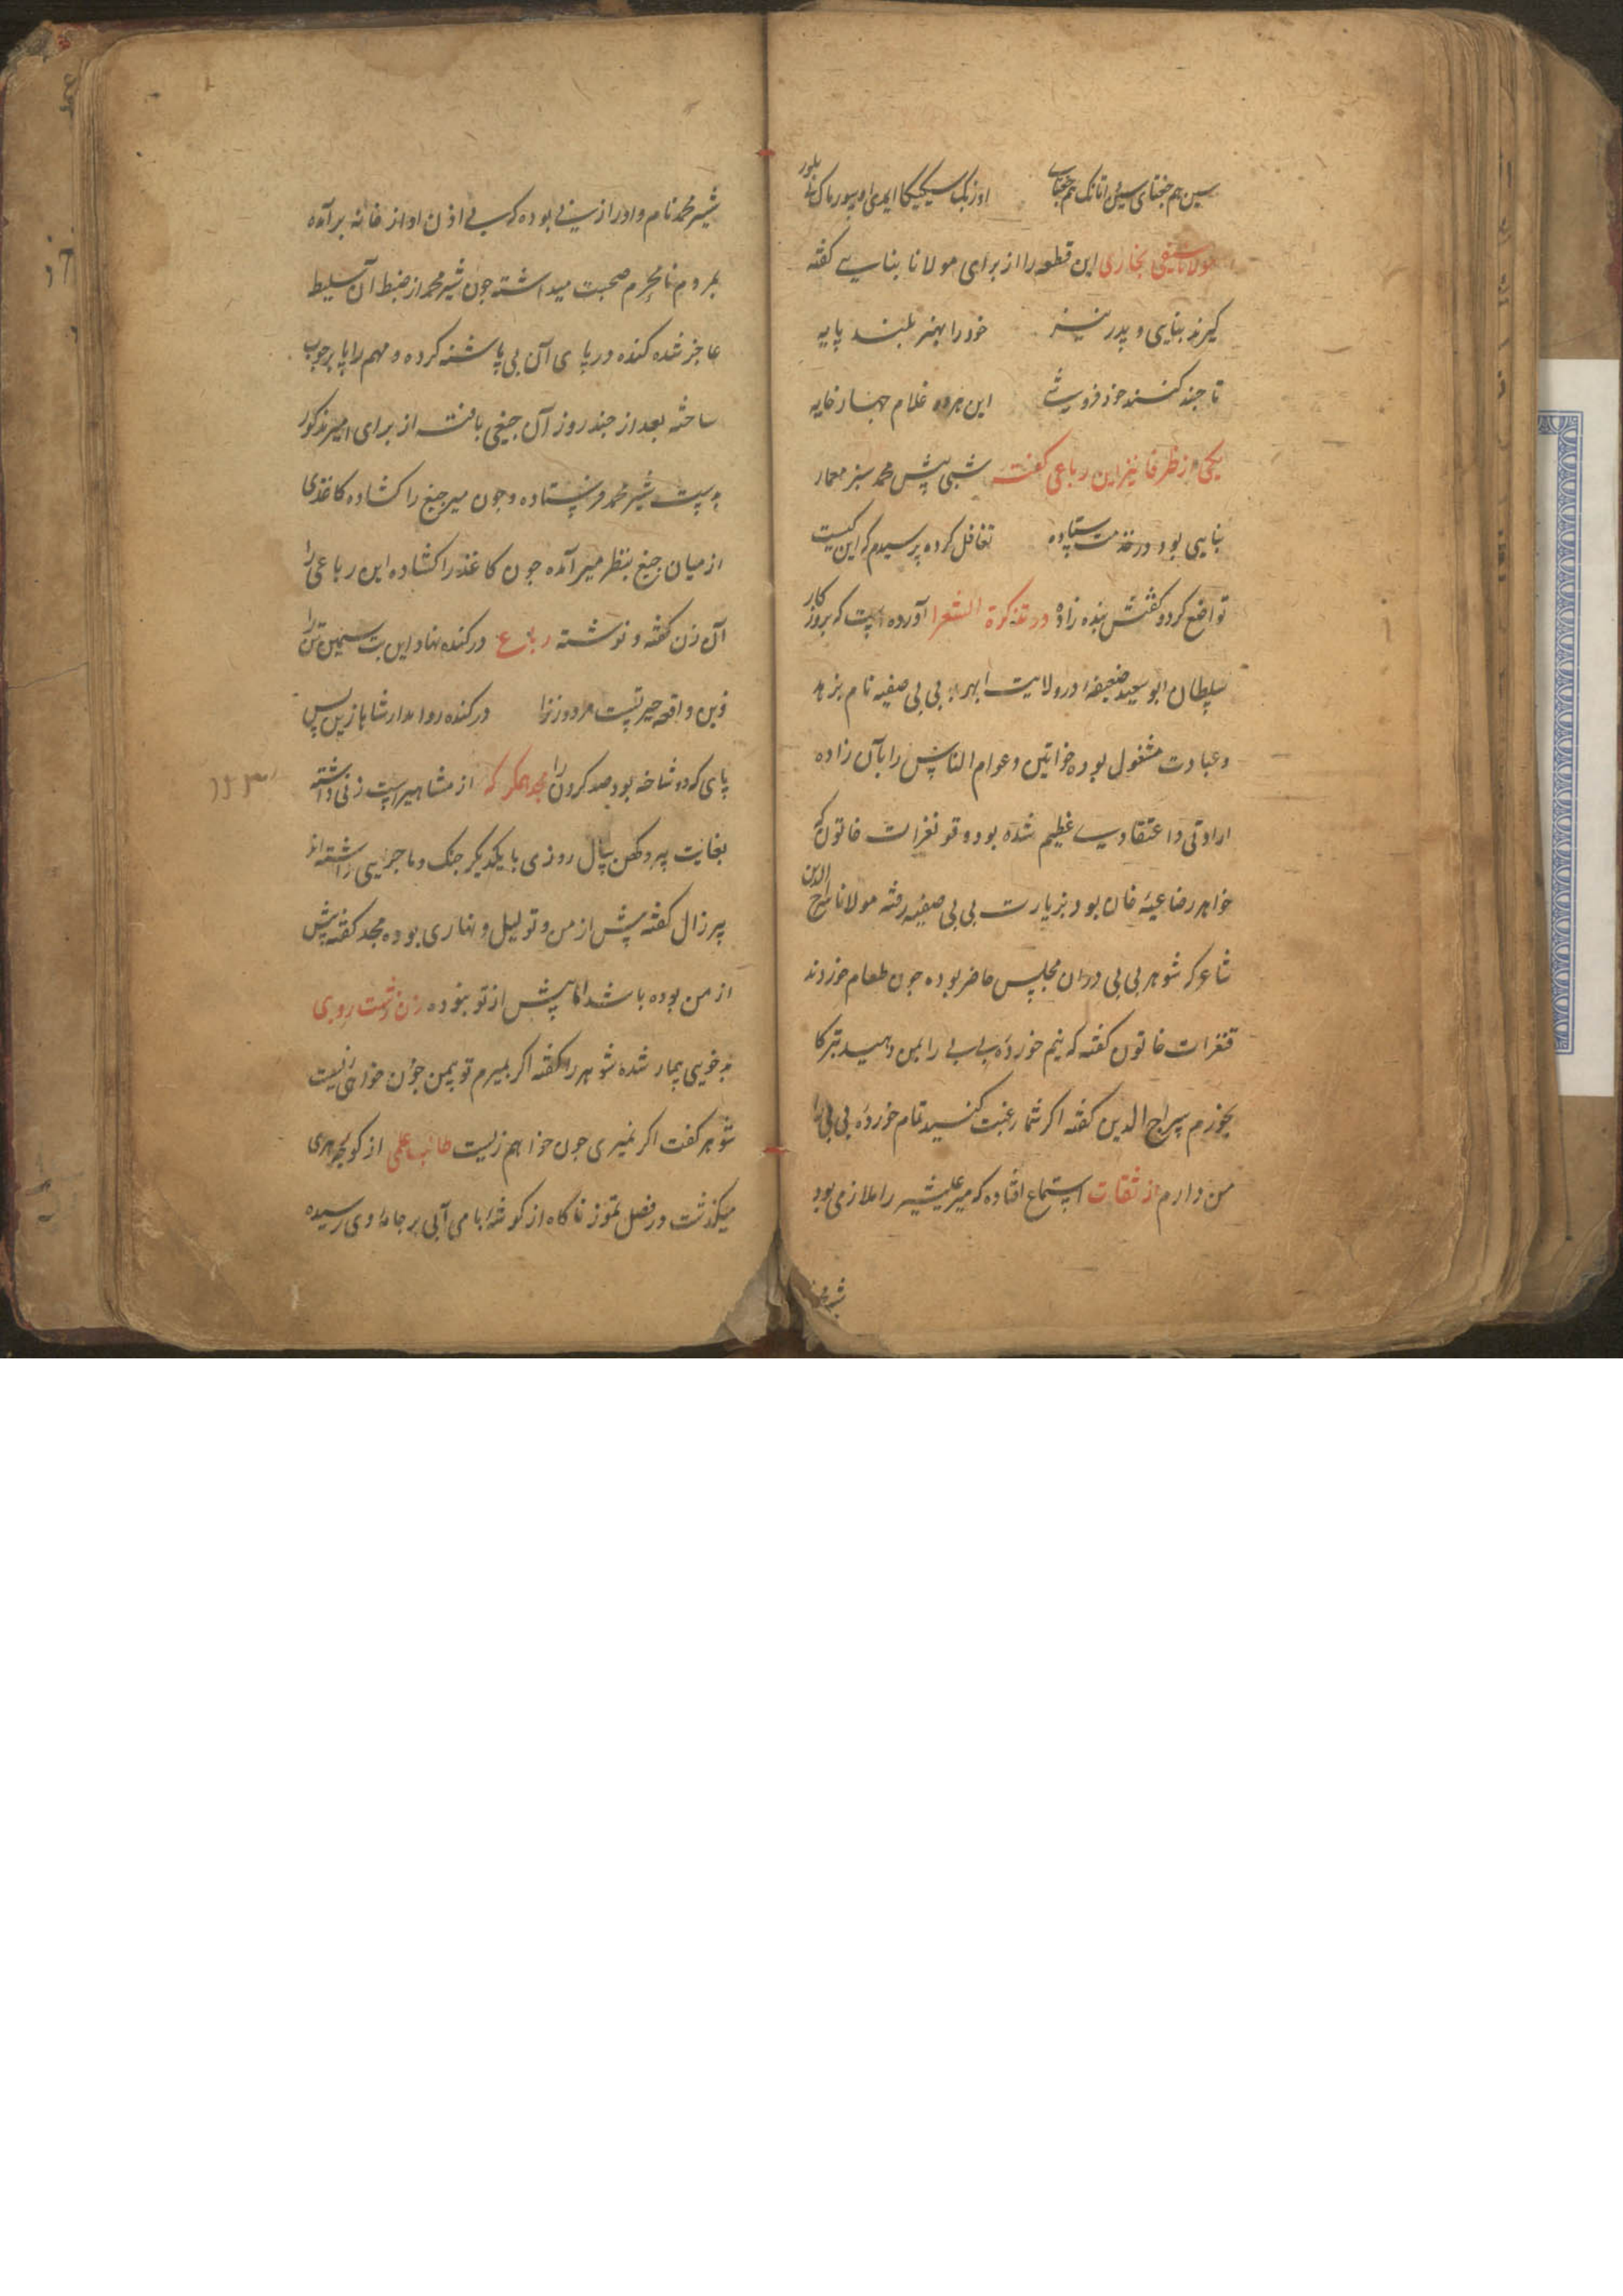 سین هم جغتای سینی اتانک هم جغتای اوزبک
مولانا سیفی بخاری این قطعه را از برای مولانا بنایی گفته
گیرند بنایی و پدر نیز خود را بهنر بلند پایه
تا چند کنند خود فروشی این هر دو غلام چهار خایه
یکی از ظرفا نیز این رباعی گفته شبی پیش محمد سبز معمار
بنایی بود در خدمت ستاده تغافل کرده پرسیدم که این کیست
تواضع کرد و گفتش بنده زاده در تذکرة الشعرا آورده است که بروزکار
سلطان ابو سعید ضعیفه در ولایت ابهر بی بی صفیه نام بزهد
و عبادت مشغول بوده خواتین و عوام الناس را بآن زاده
ارادتی و اعتقادی عظیم شده بود و قونغرات خاتون که
خواهر رضاعیه خان بود بزیارت بی بی صفیه رفته مولانا سراج الدین
شاعر که شوهر بی بی در ان مجلس حاضر بوده چون طعام خوردند
قنغرات خاتون گفته که نیم خورده بی بی را بمن دهید تبرکا
بخورم سراج الدین گفته اگر شما رغبت کنید تمام خورده بی بی را
من دارم از ثقات استماع افتاده که میر علیشیر را ملازمی بود
شیر محمد
شیر محمد نام و او را زینی بوده که بی اذن او از خانه برآمده
بمردم نامحرم صحبت میداشته چون شیر محمد از ضبط آن سلیط
عاجز شده کنده در پای آن بی پاشنه کرده و مهم را پا بر چوب
ساخته بعد از چند روز آن جیغی بافته از برای امیر مذکور
بدست شیر محمد فرستاده و چون میر جیغ را کشاده کاغذی
از میان جیغ بنظر میر آمده چون کاغذ را کشاده این رباعی را
آن زن گفته و نوشته رباعی در کنده نهاد این بت سیمین تن را
زین واقعه حیرتیست مرد و زن را در کنده روا مدار شاها زین پس
پای که دو شاخه بود صد گردن را مجد همگر که از مشاهیر است زنی داشته
بغایت پیر و کهن سال روزی با یکدیگر جنک و ماجرایی داشته اند
پیر زال گفته پیش از من و تو لیل و نهاری بوده مجد گفته پیش
از من بوده باشد اما پیش از تو نبوده زن زشت رویی
بدخویی بیمار شده شوهر را گفته اگر بمیرم تو بیمن چون خواهی زیست
شوهر گفت اگر نمیری چون خواهم زیست طالب علمی از کوچه هری
میگذشت در فصل تموز ناگاه از گوشه بامی آبی بر جامه وی رسیده